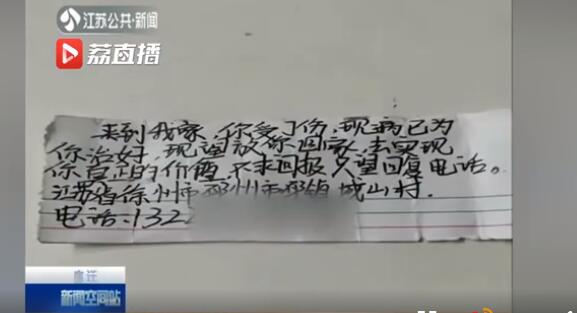 江苏公共·新闻
荔直播
来到我家,你受了伤,现病已为
你治好,现望放你回家,去实现
你真正的价值,不求回报只望回复电话。
江苏省徐州市邳州市邳城镇城山村.
电话:132
宿迁
新闻空间站